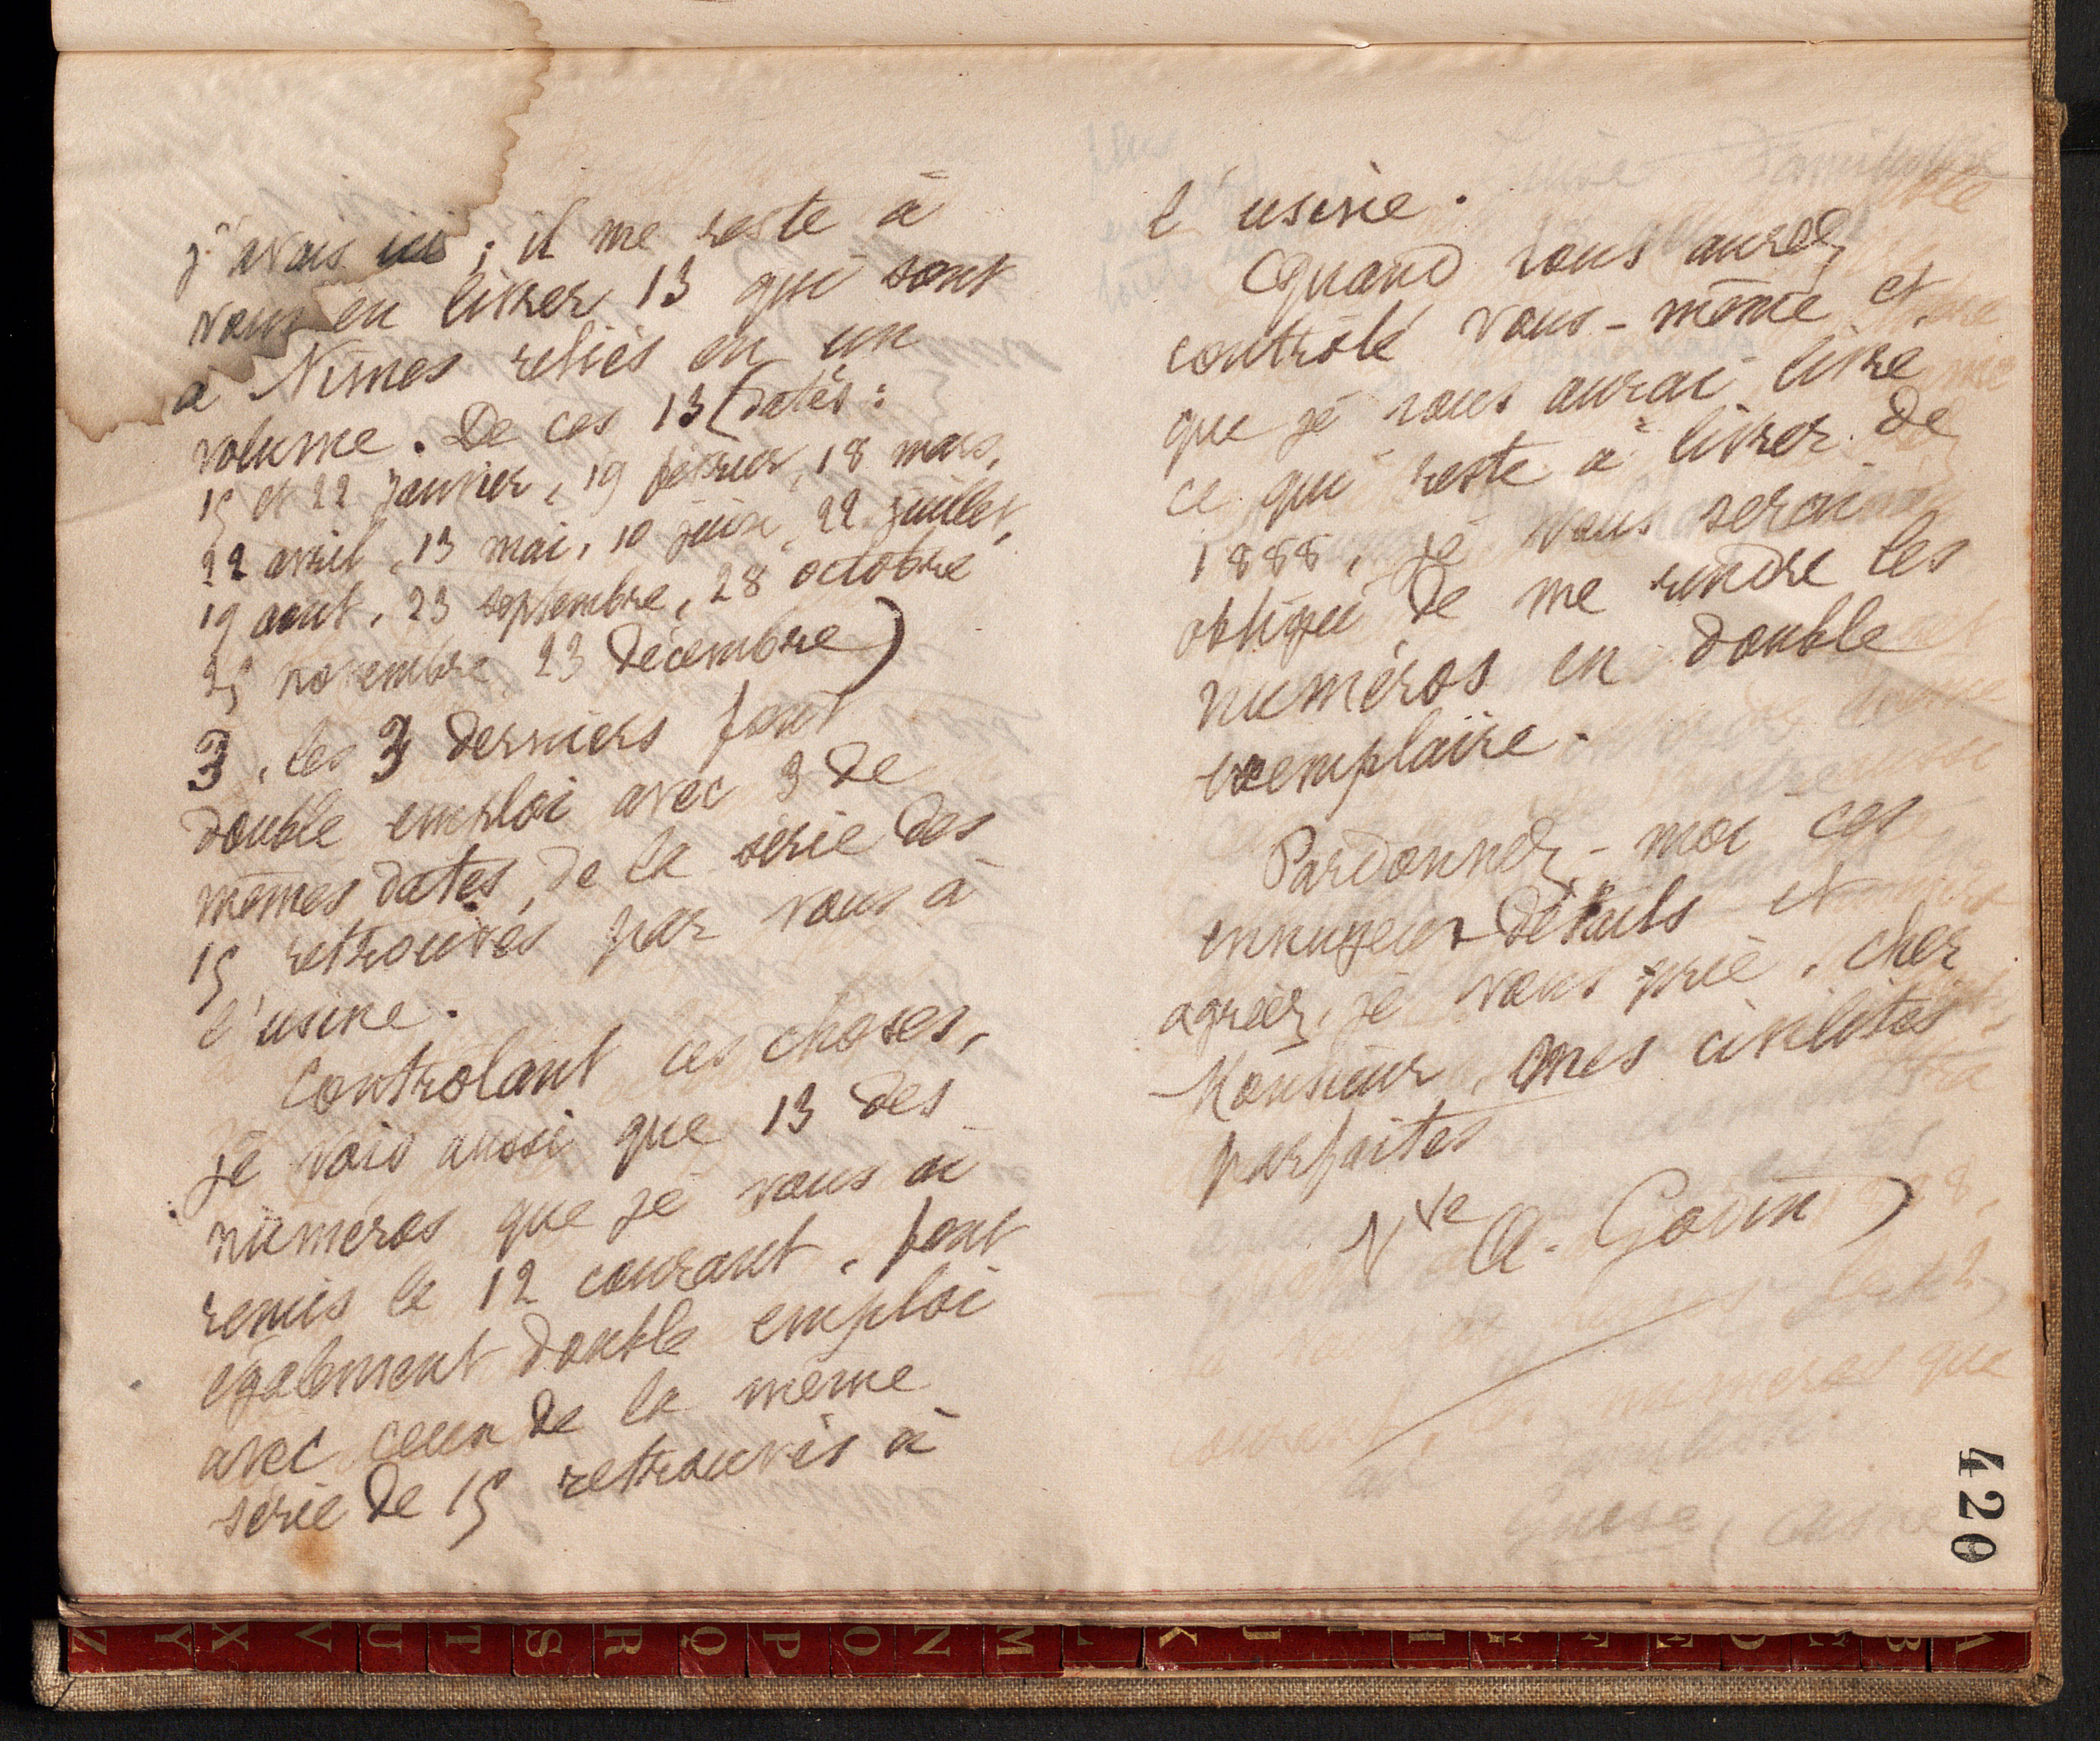 j'avais ici ; il me reste à
vous en livrer 13 qui sont
à Nîmes reliés en un
volume. De ces 13 (datés :
15 et 22 janvier, 19 février, 18 mars,
22 avril, 13 mai, 10 juin, 22 juillet,
19 août, 23 septembre, 28 octobre
25 novembre, 23 décembre)
3, les 3 derniers font
double emploi avec 3 de
mêmes dates, de la série des
15 retrouvés par vous à
l'usine.
Contrôlant ces choses,
je vois aussi que 13 des
numéros que je vous ai
remis le 12 courant, font
également double emploi
avec ceux de la même
série de 15 retrouvés à
l'usine.
Quand vous aurez
contrôlé vous-même et
que je vous aurai livré
ce qui reste à livrer de
1888, je vous serai
obligée de me rendre les
numéros en double
exemplaire.
Pardonnez-moi ces
ennuyeux détails et
agréez, je vous prie, cher
Monsieur, mes civilités
parfaites
Vve A. Godin
420
Z Y X V U T S R Q P O N M L K J I H G F E D C B A